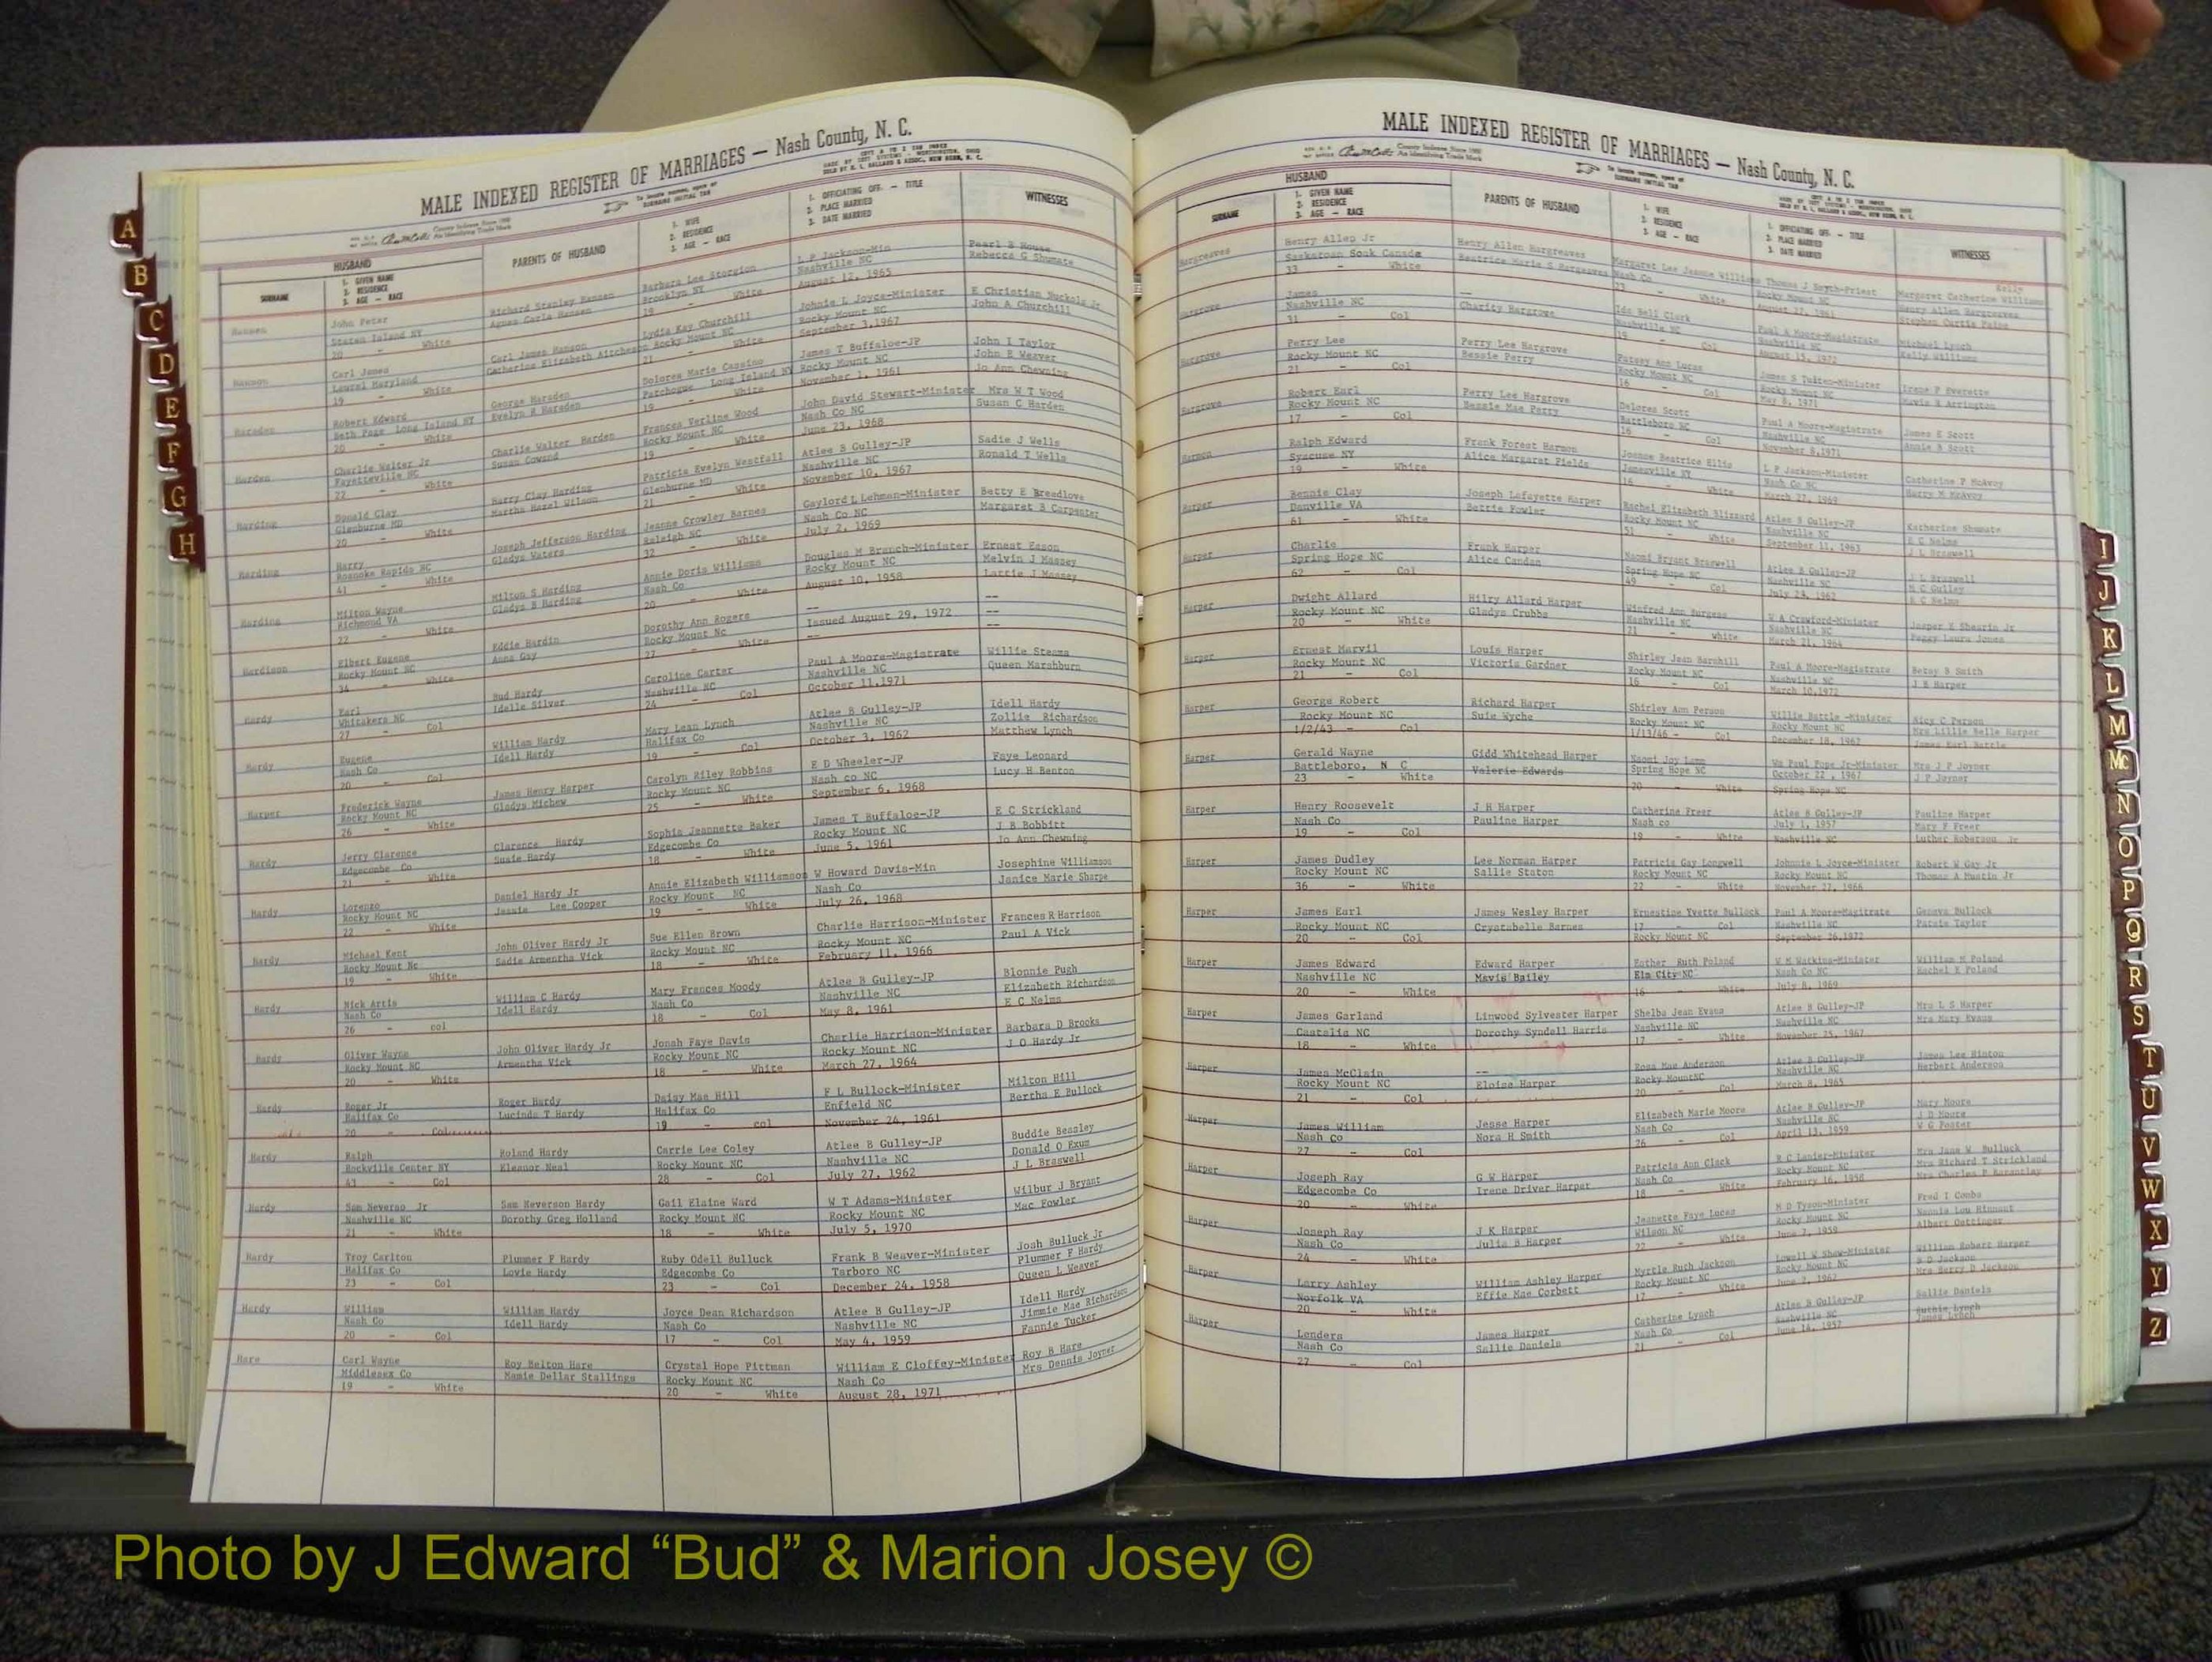 MALE INDEXED REGISTER OF MARRIAGES — Nash County, N. C.
HUSBAND
SURNAME
1. GIVEN NAME
2. RESIDENCE
3. AGE — RACE
PARENTS OF HUSBAND
1. WIFE
2. RESIDENCE
3. AGE — RACE
1. OFFICIATING OFF. — TITLE
2. PLACE MARRIED
3. DATE MARRIED
WITNESSES
Hansen John Peter Richard Stanley Hansen Barbara Lee Storgion L P Jackson-Min Pearl B House
Staten Island NY Agnes Carla Hansen Brooklyn NY Nashville NC Rebecca G Shumate
20 - White 19 - White August 12, 1965
Hanson Carl James Carl James Hanson Lydia Kay Churchill Johnie L Joyce-Minister E Christian Nuckols Jr
Laurel Maryland Catherine Elizabeth Aitcheson Rocky Mount NC Rocky Mount NC John A Churchill
19 - White 21 - White September 3,1967
Harsden Robert Edward George Harsden Dolores Marie Cassino James T Buffaloe-JP John I Taylor
Beth Page Long Island NY Evelyn R Harsden Patchogue Long Island NY Rocky Mount NC John E Weaver
20 - White 19 - White November 1, 1961 Jo Ann Chewning
Harden Charlie Walter Jr Charlie Walter Harden Frances Verline Wood John David Stewart-Minister Mrs W T Wood
Fayetteville NC Susan Cowand Rocky Mount NC Nash Co NC Susan C Harden
22 - White 19 - White June 23, 1968
Harding Donald Clay Harry Clay Harding Patricia Evelyn Westfall Atlee B Gulley-JP Sadie J Wells
Glenburne MD Martha Hazel Wilson Glenburne MD Nashville NC Ronald T Wells
20 - White 21 - White November 10, 1967
Harding Harry Joseph Jefferson Harding Jeanne Crowley Barnes Gaylord L Lehman-Minister Betty E Breedlove
Roanoke Rapids NC Gladys Waters Raleigh NC Nash Co NC Margaret B Carpenter
41 - White 32 - White July 2, 1969
Harding Milton Wayne Milton S Harding Annie Doris Williams Douglas M Branch-Minister Ernest Eason
Richmond VA Gladys B Harding Nash Co Rocky Mount NC Melvin J Massey
22 - White 20 - White August 10, 1958 Lattie J Massey
Hardison Elbert Eugene Eddie Hardin Dorothy Ann Rogers -- --
Rocky Mount NC Anna Gay Rocky Mount Nc Issued August 29, 1972 --
34 - White 27 - White -- --
Hardy Earl Bud Hardy Caroline Carter Paul A Moore-Magistrate Willie Steama
Whitakers NC Idelle Silver Nashville NC Nashville NC Queen Marshburn
27 - Col 24 - Col October 11,1971
Hardy Eugene William Hardy Mary Lean Lynch Atlee B Gulley-JP Idell Hardy
Nash Co Idell Hardy Halifax Co Nashville NC Zollie Richardson
20 - Col 19 - Col October 3, 1962 Matthew Lynch
Harper Frederick Wayne James Henry Harper Carolyn Riley Robbins E D Wheeler-JP Faye Leonard
Rocky Mount NC Gladys Michew Rocky Mount NC Nash co NC Lucy H Benton
26 - White 25 - White September 6, 1968
Hardy Jerry Clarence Clarence Hardy Sophia Jeannette Baker James T Buffaloe-JP E C Strickland
Edgecombe Co Susie Hardy Edgecombe Co Rocky Mount NC J B Bobbitt
21 - White 18 - White June 5, 1961 Jo Ann Chewning
Hardy Lorenzo Daniel Hardy Jr Annie Elizabeth Williamson W Howard Davis-Min Josephine Williamson
Rocky Mount NC Jessie Lee Cooper Rocky Mount NC Nash Co Janice Marie Sharpe
22 - White 19 - White July 26, 1968
Hardy Michael Kent John Oliver Hardy Jr Sue Ellen Brown Charlie Harrison-Minister Frances R Harrison
Rocky Mount Nc Sadie Armentha Vick Rocky Mount NC Rocky Mount NC Paul A Vick
19 - White 18 - White February 11, 1966
Hardy Nick Artis William C Hardy Mary Frances Moody Atlee B Gulley-JP Blonnie Pugh
Nash Co Idell Hardy Nash Co Nashville NC Elizabeth Richardson
26 - col 18 - Col May 8, 1961 E C Nelms
Hardy Oliver Wayne John Oliver Hardy Jr Jonah Faye Davis Charlie Harrison-Minister Barbara D Brooks
Rocky Mount NC Armentha Vick Rocky Mount NC Rocky Mount NC J O Hardy Jr
20 - White 18 - White March 27, 1964
Hardy Roger Jr Roger Hardy Daisy Mae Hill F L Bullock-Minister Milton Hill
Halifax Co Lucinda T Hardy Halifax Co Enfield NC Bertha E Bullock
20 - Col 19 - col November 24, 1961
Hardy Ralph Roland Hardy Carrie Lee Coley Atlee B Gulley-JP Buddie Beasley
Rockville Center NY Eleanor Neal Rocky Mount NC Nashville NC Donald O Exum
43 - Col 28 - Col July 27, 1962 J L Braswell
Hardy Sam Neverso Jr Sam Neverson Hardy Gail Elaine Ward W T Adams-Minister Wilbur J Bryant
Nashville NC Dorothy Greg Holland Rocky Mount NC Rocky Mount NC Mac Fowler
21 - White 18 - White July 5, 1970
Hardy Troy Carlton Plummer F Hardy Ruby Odell Bulluck Frank B Weaver-Minister Josh Bulluck Jr
Halifax Co Lovie Hardy Edgecombe Co Tarboro NC Plummer F Hardy
23 - Col 23 - Col December 24, 1958 Queen L Weaver
Hardy William William Hardy Joyce Dean Richardson Atlee B Gulley-JP Idell Hardy
Nash Co Idell Hardy Nash Co Nashville NC Jimmie Mae Richardson
20 - Col 17 - Col May 4, 1959 Fannie Tucker
Hare Carl Wayne Roy Belton Hare Crystal Hope Pittman William E Cloffey-Minister Roy B Hare
Middlesex Co Mamie Dellar Stallings Rocky Mount NC Nash Co Mrs Dennis Joyner
19 - White 20 - White August 28, 1971
MALE INDEXED REGISTER OF MARRIAGES — Nash County, N. C.
HUSBAND
SURNAME
1. GIVEN NAME
2. RESIDENCE
3. AGE — RACE
PARENTS OF HUSBAND
1. WIFE
2. RESIDENCE
3. AGE — RACE
1. OFFICIATING OFF. — TITLE
2. PLACE MARRIED
3. DATE MARRIED
WITNESSES
Hargreaves Henry Allen Jr Henry Allen Hargreaves Margaret Lee Jeanne Williams Thomas J -Priest Margaret Catherine Williams
Saskatoan Souk Canada Beatrice Marie S Hargreaves Nash Co Rocky Mount NC Henry Allen Hargreaves
33 - White 23 - White August 27, 1961 Stephen Curtis Paine
Hargrove James -- Ida Bell Clark Paul A Moore-Magistrate Michael Lynch
Nashville NC Charity Hargrove Nashville NC Nashville NC Kelly Williams
31 - Col 19 - Col August 15, 1972
Hargrove Perry Lee Perry Lee Hargrove Patsey Ann Lucas James S Tuiten-Minister Irene P Everette
Rocky Mount NC Bessie Perry Rocky Mount NC Rocky Mount NC Mavis R Arrington
21 - Col 16 - Col May 8, 1971
Hargrove Robert Earl Perry Lee Hargrove Delores Scott Paul A Moore-Magistrate James E Scott
Rocky Mount NC Bessie Mae Perry Battleboro NC Nashville NC Annie B Scott
17 - Col 16 - Col November 8,1971
Harmon Ralph Edward Frank Forest Harmon Joanne Beatrice Ellis L P Jackson-Minister Catherine P McAvoy
Syscuse NY Alice Margaret Fields Janesville NY Nash Co NC Harry M McAvoy
19 - White 16 - White March 27, 1969
Harper Bennie Clay Joseph Lafayette Harper Rachel Elizabeth Blizzard Atlee B Gulley-JP Katherine Shumate
Danville VA Bettie Fowler Rocky Mount NC Nashville NC E C Nelms
61 - White 51 - White September 11, 1963 J L Braswell
Harper Charlie Frank Harper Naomi Bryant Braswell Atlee B Gulley-JP J L Braswell
Spring Hope NC Alice Candan Spring Hope NC Nashville NC M C Gulley
62 - Col 49 - Col July 28, 1962 E C Nelms
Harper Dwight Allard Hilry Allard Harper Winfred Ann Burgess W A Crawford-Minister Jasper E Shearin Jr
Rocky Mount NC Gladys Crubbs Nashville NC Nashville NC Peggy Laura Jones
20 - White 21 - white March 21, 1964
Harper Ernest Marvil Louis Harper Shirley Jean Barnhill Paul A Moore-Magistrate Betsy B Smith
Rocky Mount NC Victoria Gardner Rocky Mount NC Nashville NC J B Harper
21 - Col 16 - Col March 10,1972
Harper George Robert Richard Harper Shirley Ann Person Willie Battle -Minister Alex C Person
Rocky Mount NC Suie Wyche Rocky Mount NC Rocky Mount NC Mrs Lillie Belle Harper
1/2/43 - Col 1/13/46 - Col December 18, 1962 James Earl Battle
Harper Gerald Wayne Gidd Whitehead Harper Naomi Joy Lamm Wm Paul Pope Jr-Minister Mrs J P Joyner
Battleboro, N C Valerie Edwards Spring Hope NC October 22 , 1967 J P Joyner
23 - White 20 - White Spring Hope NC
Harper Henry Roosevelt J H Harper Catherine Freer Atlee B Gulley-JP Pauline Harper
Nash Co Pauline Harper Nash co July 1, 1957 Mary F Freer
19 - Col 19 - White Nashville NC Luther Roberson Jr
Harper James Dudley Lee Norman Harper Patricia Gay Longwell Johnnie L Joyce-Minister Robert W Gay Jr
Rocky Mount NC Sallie Staton Rocky Mount NC Rocky Mount NC Thomas A Mustin Jr
36 - White 22 - White November 27, 1966
Harper James Earl James Wesley Harper Ernestine Yvette Bullock Paul A Moore-Magitrate Geneva Bullock
Rocky Mount NC Crystabelle Barnes 17 - Col Nashville NC Patsie Taylor
20 - Col Rocky Mount NC September 26,1972
Harper James Edward Edward Harper Esther Ruth Poland W M Watkins-Minister William M Poland
Nashville NC Mavis Bailey Elm City NC Nash Co NC Rachel E Poland
20 - White 16 - White July 8, 1969
Harper James Garland Linwood Sylvester Harper Shelba Jean Evans Atlee B Gulley-JP Mrs L S Harper
Castalia NC Dorothy Syndell Harris Nashville NC Nashville NC Mrs Mary Evans
18 - White 17 - White November 25, 1967
Harper James McClain -- Rosa Mae Anderson Atlee B Gulley-JP James Lee Hinton
Rocky Mount NC Eloise Harper Rocky MountNC Nashville NC Herbert Anderson
21 - Col 20 - Col March 8, 1965
Harper James William Jesse Harper Elizabeth Marie Moore Atlee B Gulley-JP Mary Moore
Nash Co Nora H Smith Nash Co Nashville NC J D Moore
27 - Col 26 - Col April 13, 1959 W G Foster
Harper Joseph Ray G W Harper Patricia Ann Clack R C Lanier-Minister Mrs Jane W Bulluck
Edgecombe Co Irene Driver Harper Nash Co Rocky Mount NC Mrs Richard T Strickland
20 - White 18 - White February 16, 1958 Mrs Charles P
Harper Joseph Ray J K Harper Jeanette Faye Lucas M D Tyson-Minister Fred I Combs
Nash Co Julia B Harper Wilson NC Rocky Mount NC Nannie Lou Hinnant
24 - White 22 - White June 7, 1959 Albert Oettinger
Harper Larry Ashley William Ashley Harper Myrtle Ruth Jackson Lowell W Shaw-Minister William Robert Harper
Norfolk VA Effie Mae Corbett Rocky Mount NC Rocky Mount NC S O Jackson
20 - White 17 - White June 2, 1962 Mrs Betty D Jackson
Harper Lenders James Harper Catherine Lynch Atlee B Gulley-JP Sallie Daniels
Nash Co Sallie Daniels Nash Co Nashville NC Guthie Lynch
27 - Col 21 - Col June 14, 1957 James Lynch
A
B
C
D
E
F
G
H
I
J
K
L
M
Mc
N
O
P
Q
R
S
T
U
V
W
X
Y
Z
Photo by J Edward “Bud” & Marion Josey ©